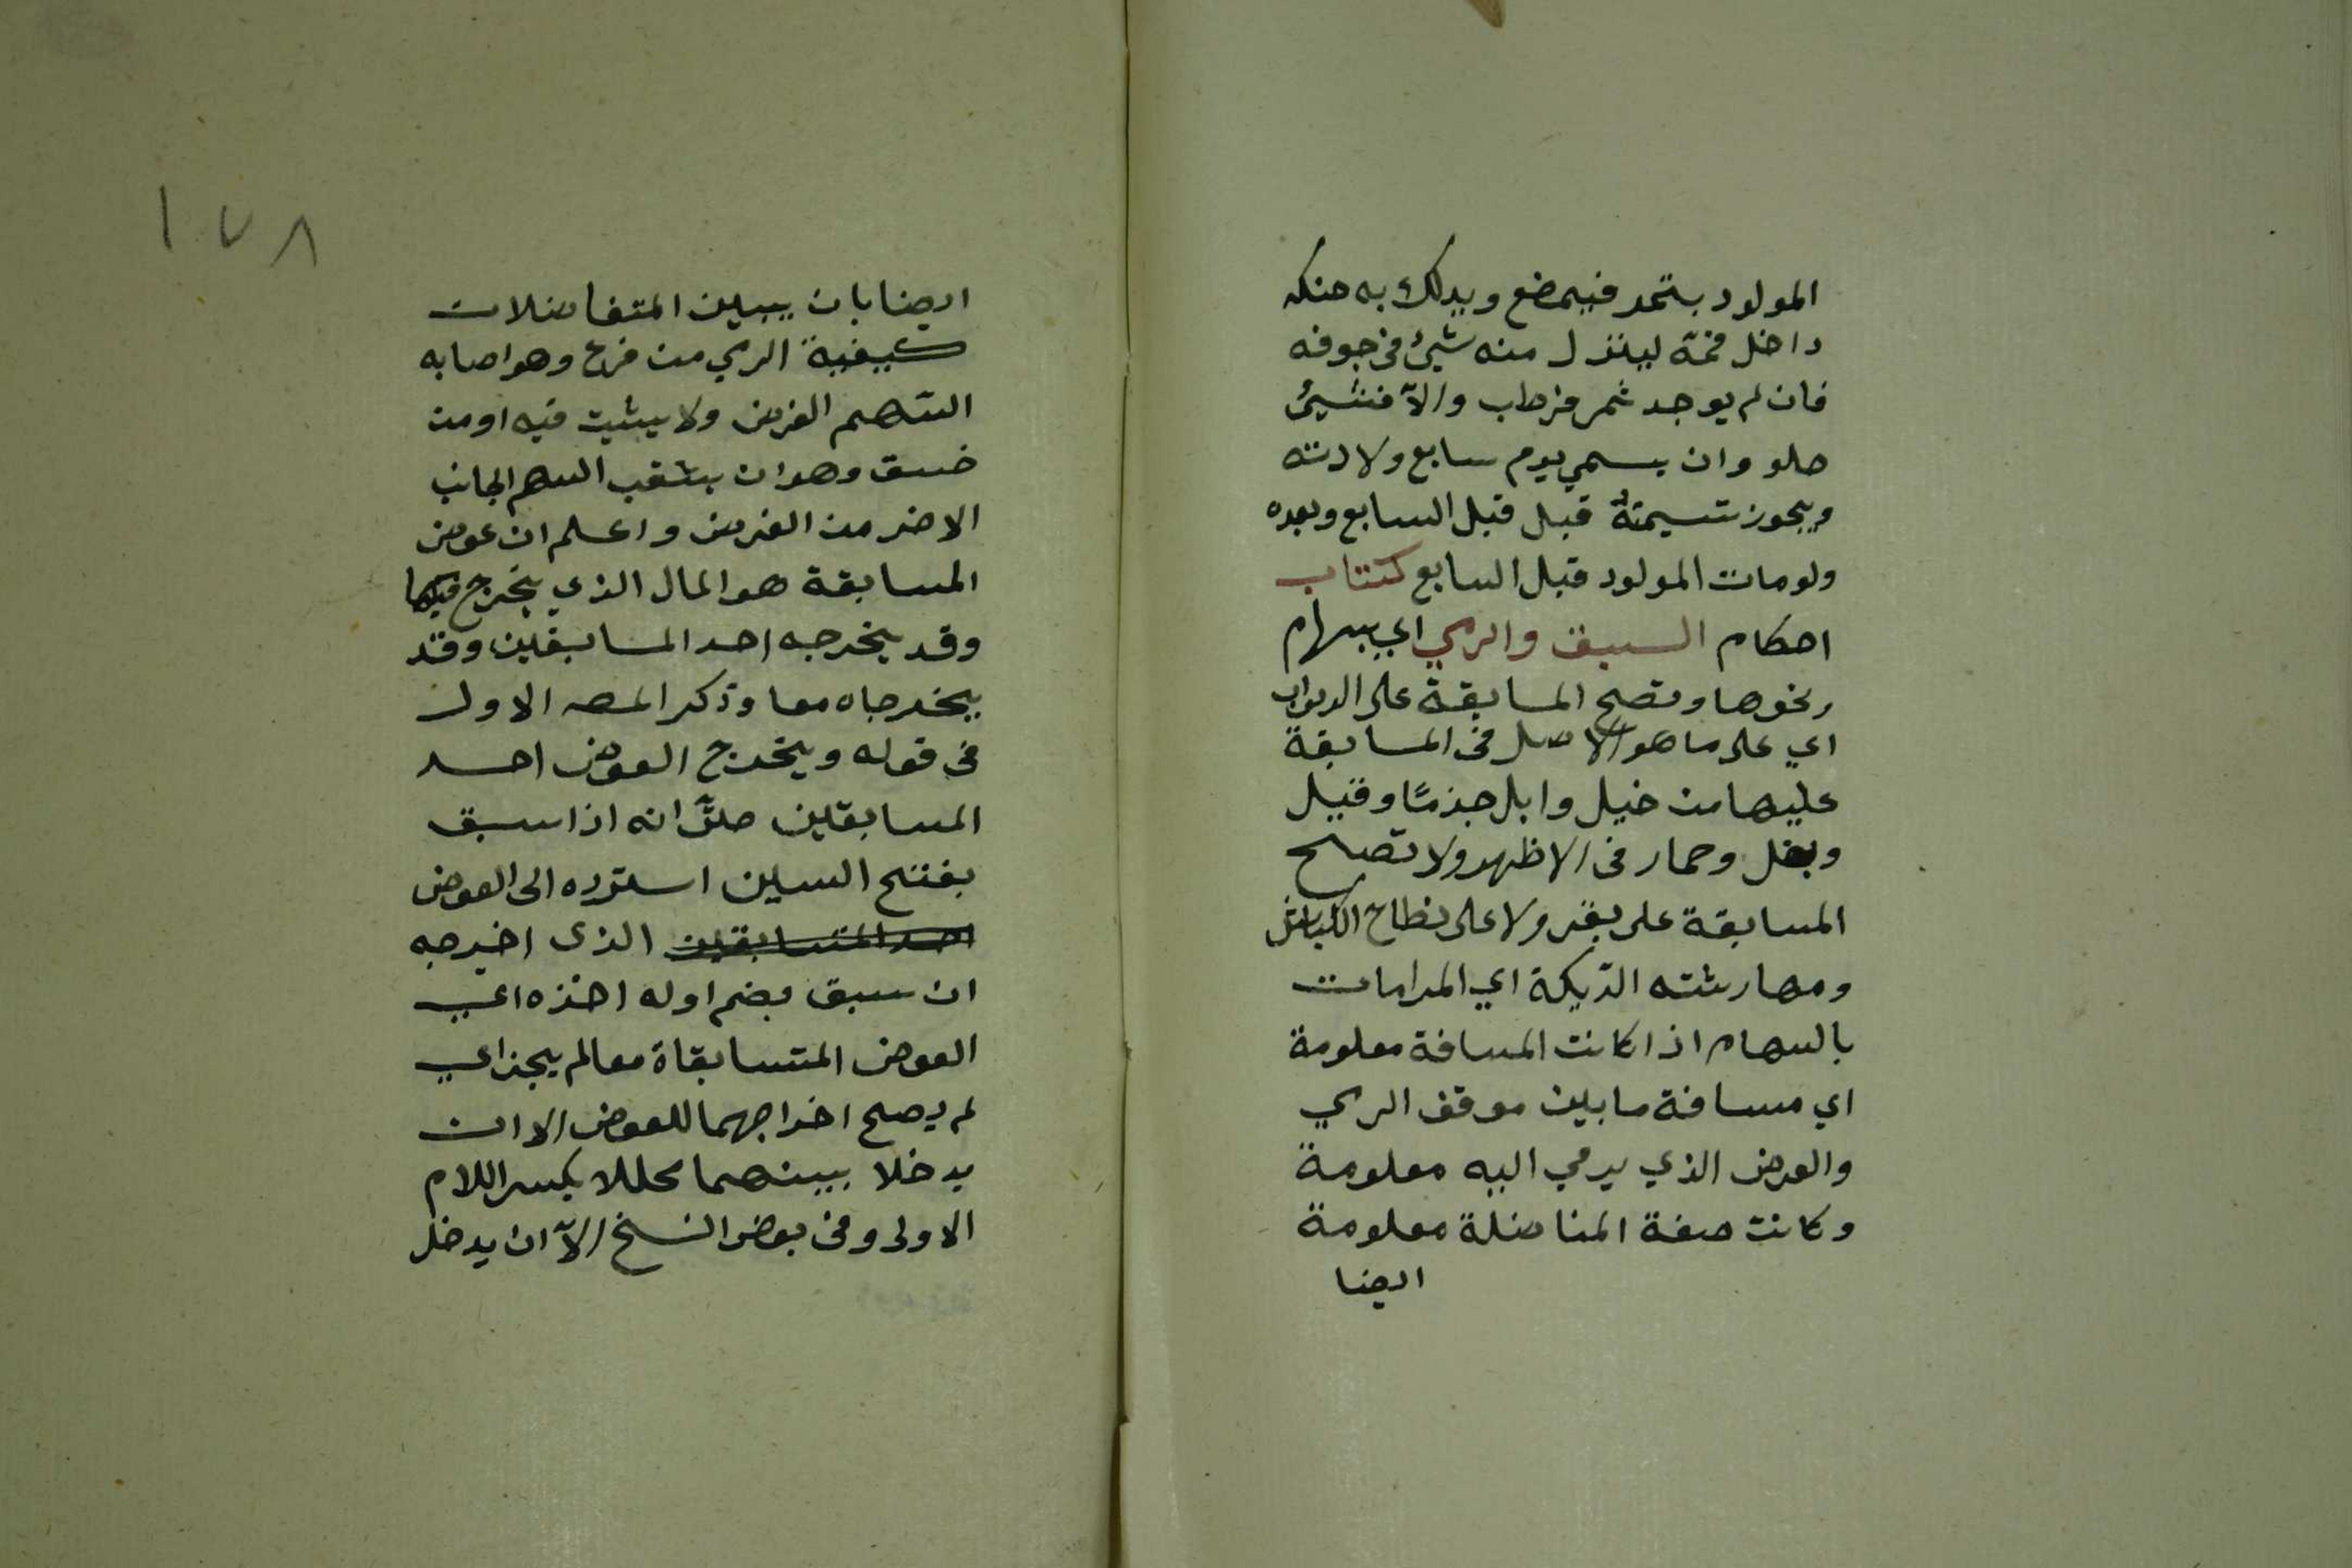 المولود بتمر فيمضغ ويدلك به حنكه
داخل فمة لينزل منه شيئ في جوفه
فان لم يوجد ثمر فرطب والآ فشيئ
حلو وان يسمي يوم سابع ولادته
ويجوز تسيمتة قبل قبل السابع وبعده
ولو مات المولود قبل السابع كتتاب
احكام السبق والرمي اي بسهام
ونحوها وتصح المسابقة على الدواب
اي على ما هو الاصل في المسابقة
عليها من خيل وابل جذمًا وفيل
وبغل وحمار في الاظهر ولا تصح
المسابقة على بقر ولا على نطاح الكباش
ومهارشته الدّيكة اي المرامات
بالسهام اذا كانت المسافة معلومة
اي مسافة ما بين موقف الرمي
والغرض الذي يرمي اليه معلومة
وكانت صفة المناضلة معلومة
ايضا
١٧٨
ايضا بان يبين المتفاضلات
كيفية الرمي من قرع وهو اصابه
السهم الغرض ولا يثبت فيه او من
خسق وهو ان يثقب السهم الجانب
الاخر من الغرض واعلم ان عوض
المسابقة هو المال الذي يخرج فيها
وقد يخرجه احد المسابقين وقد
يخرجاه معا وذكر المصه الاول
في قوله ويخرج العوض احد
المسابقين حتّى انه اذا سبق
بفتح السين استرده الى العوض
احد المتسابقين الذى اخرجه
ان سبق بضم اوله اخذه اي
العوض المتسابقاة معا لم يجز اي
لم يصح اخراجهما للعوض الا ان
يدخلا بينهما محللا بكسر اللام
الاولى وفي بعض النسخ الآ ان يدخل